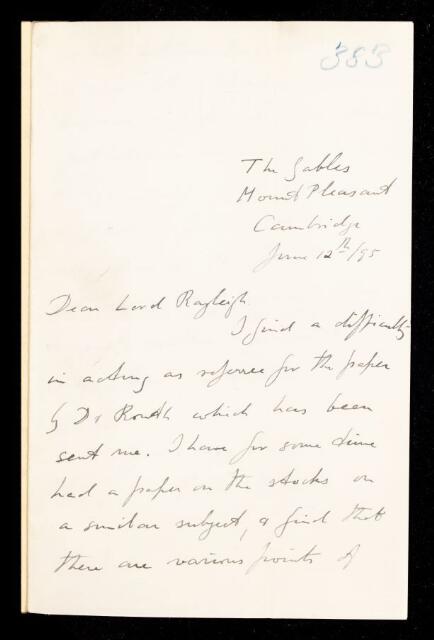 383
The Gables
Mount Pleasant
Cambridge
June 12th/95
Dear Lord Rayleigh
I find a difficulty
in acting as referee for the paper
by Dr Routh which has been
sent me. I have for some time
had a paper on the stocks on
a similar subject, & find that
there are various points of